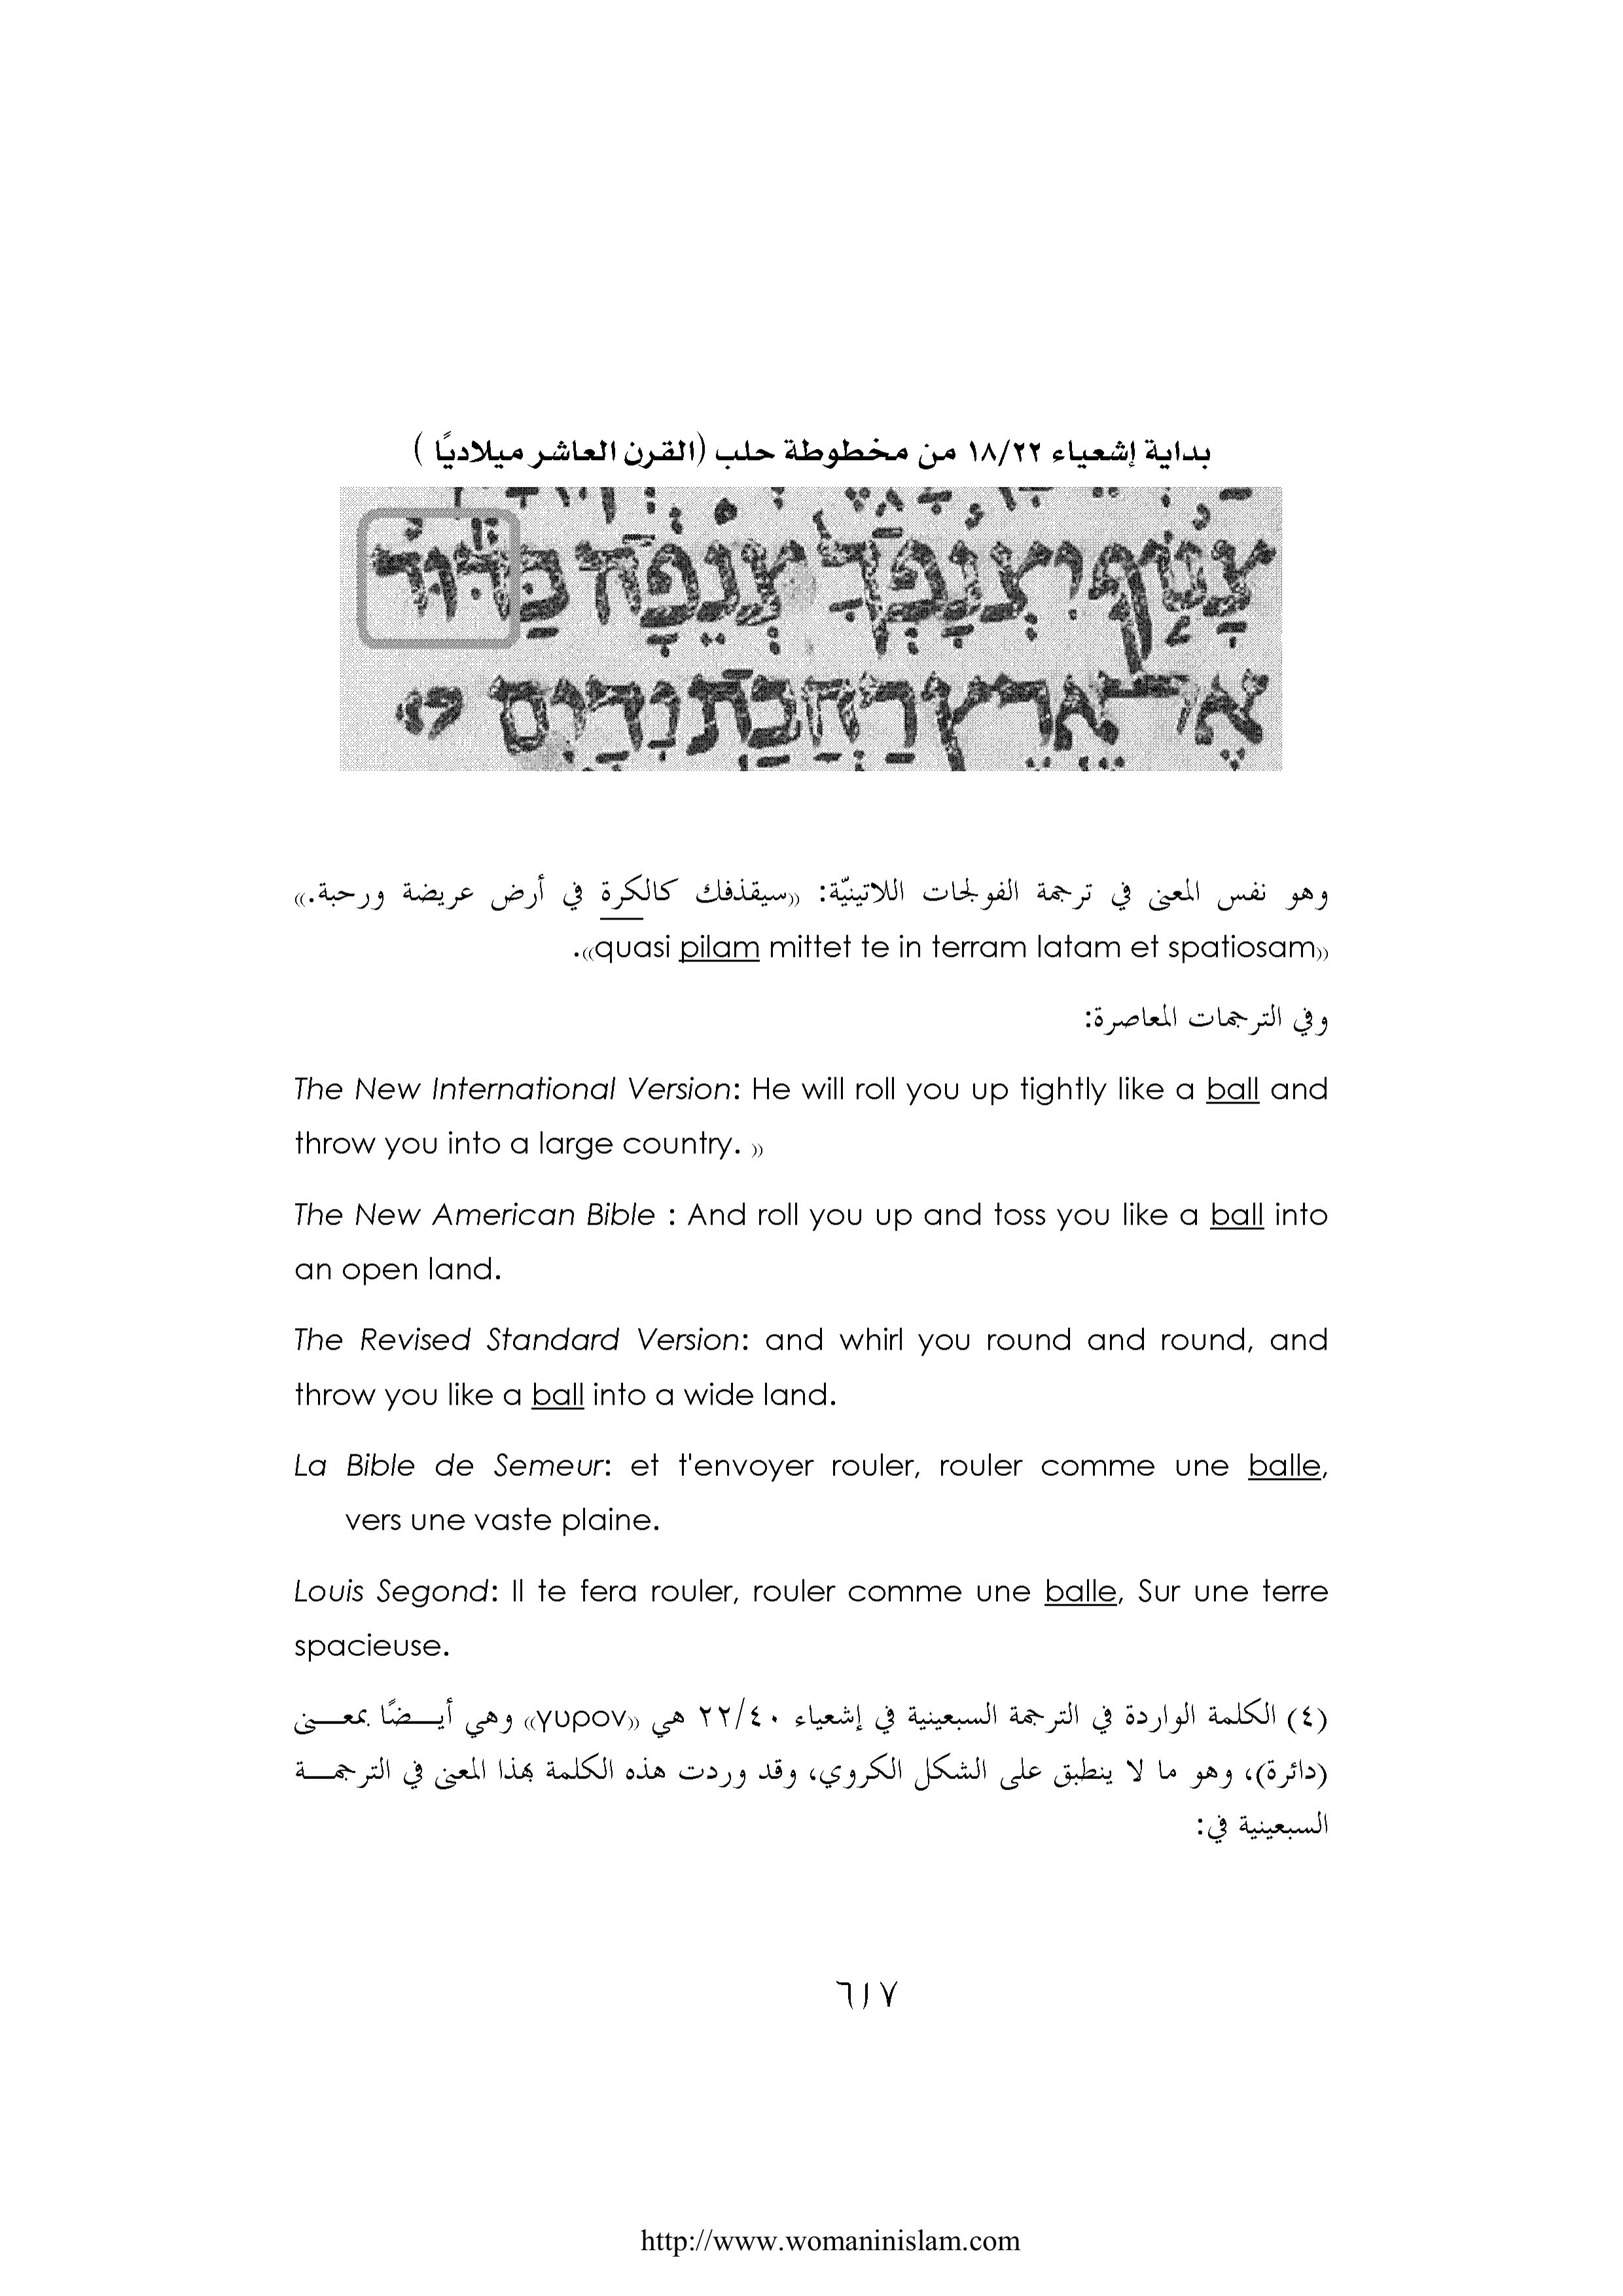 بداية إشعياء ١٨/٢٢ من مخطوطة حلب (القرن العاشر ميلاديًا )
צָנ֤וֹף יִצְנָפְךָ֙ צְנֵפָ֔ה כַּדּ֕וּר
אֶל־אֶ֖רֶץ רַחֲבַ֣ת יָדָ֑יִם
وهو نفس المعنى في ترجمة الفولجات اللاتينيّة: ((سيقذفك كالكرة في أرض عريضة ورحبة.))
((quasi pilam mittet te in terram latam et spatiosam)).
وفي الترجمات المعاصرة:
The New International Version: He will roll you up tightly like a ball and
throw you into a large country. ))
The New American Bible : And roll you up and toss you like a ball into
an open land.
The Revised Standard Version: and whirl you round and round, and
throw you like a ball into a wide land.
La Bible de Semeur: et t'envoyer rouler, rouler comme une balle,
vers une vaste plaine.
Louis Segond: Il te fera rouler, rouler comme une balle, Sur une terre
spacieuse.
(٤) الكلمة الواردة في الترجمة السبعينية في إشعياء ٢٢/٤٠ هي ((γυρον)) وهي أيـــضًا بمعـــنى
(دائرة)، وهو ما لا ينطبق على الشكل الكروي، وقد وردت هذه الكلمة بهذا المعنى في الترجمـــة
السبعينية في:
٦١٧
http://www.womaninislam.com